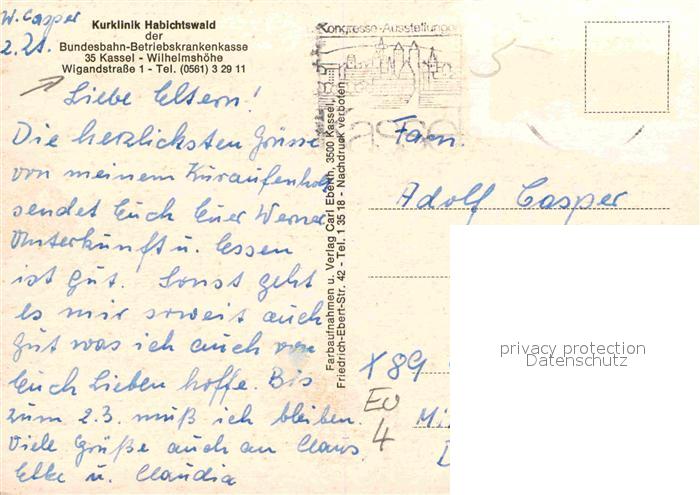 W. Casper
2.21.
Kurklinik Habichtswald
der
Bundesbahn-Betriebskrankenkasse
35 Kassel - Wilhelmshöhe
Wigandstraße 1 - Tel. (0561) 3 29 11
Liebe Eltern!
Die herzlichsten Grüsse
von meinem Kuraufenhalt
sendet Euch Euer Werner
Unterkunft u. Essen
ist gut. Sonst geht
es mir soweit auch
gut was ich auch von
Euch Lieben hoffe. Bis
zum 2.3. muß ich bleiben.
Viele Grüße auch an Claus,
Elke u. Claudia
Farbaufnahmen u. Verlag Carl Eberth, 3500 Kassel,
Friedrich-Ebert-Str. 42 - Tel. 1 35 18 - Nachdruck verboten
Kongresse-Ausstellungen
Kassel
5
Fam.
Adolf Casper
X 89
EU
4
privacy protection
Datenschutz